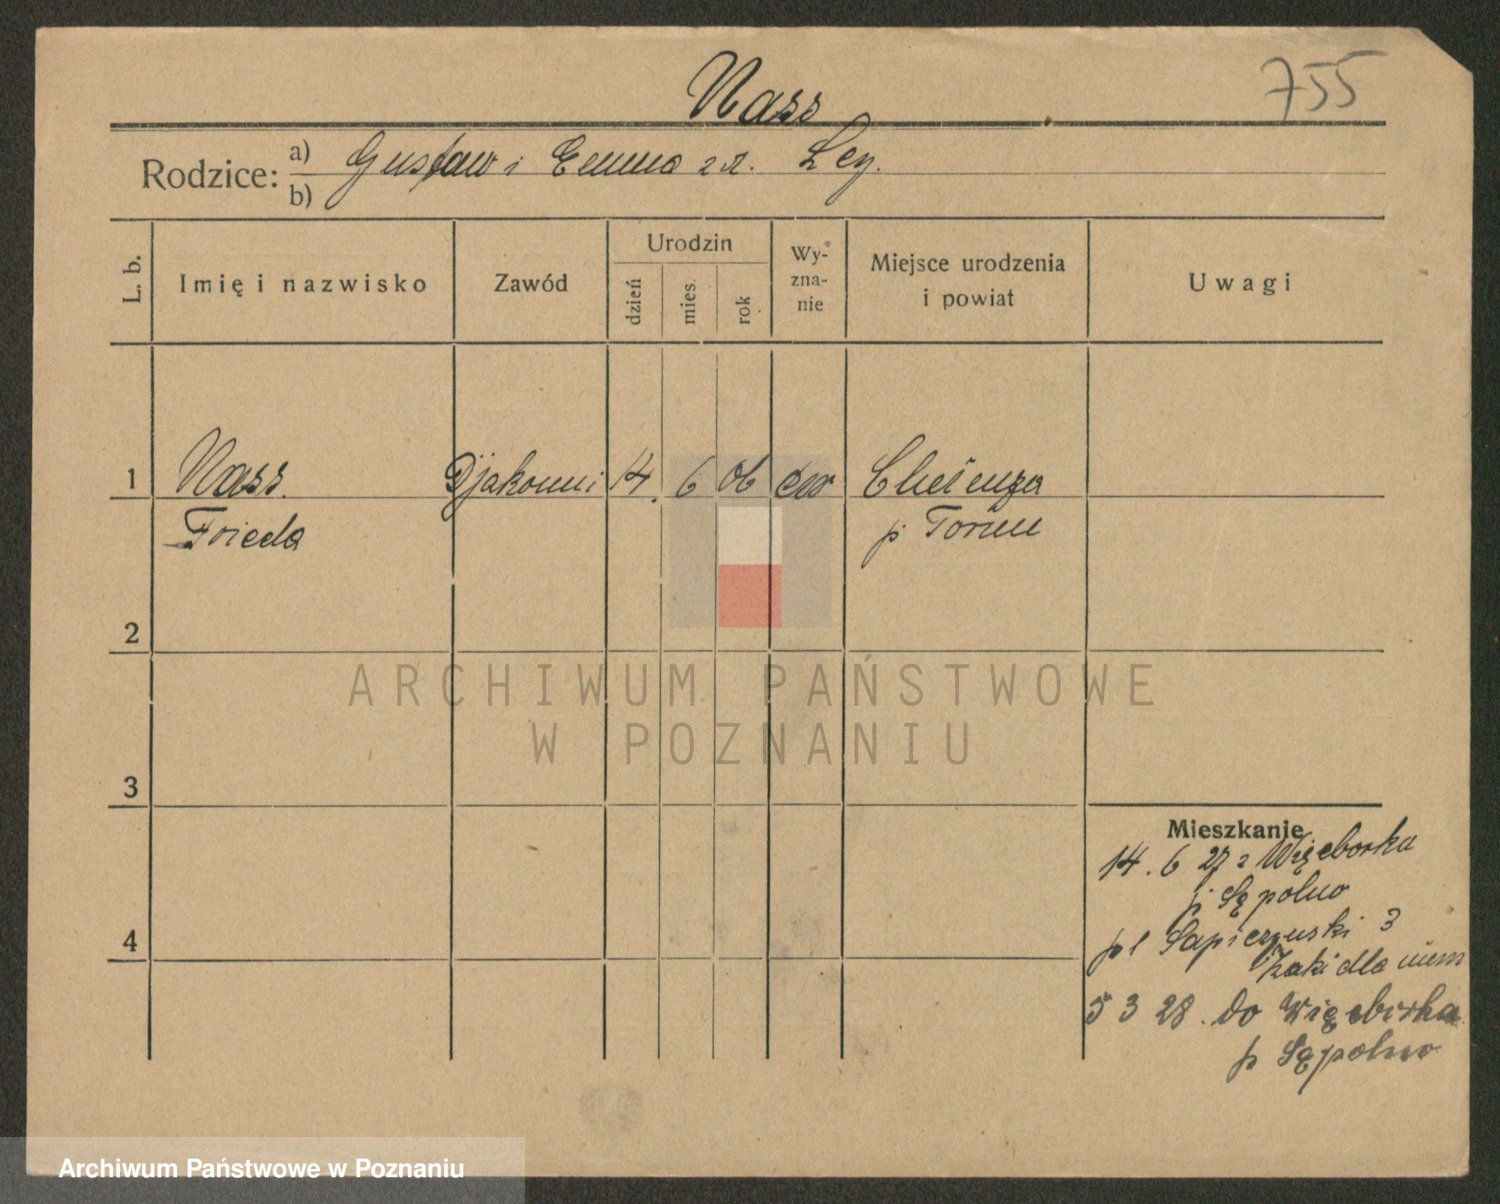 Nass
755
Rodzice: a) Gustaw i Emma z d. Ley.
b)
L. b.
Imię i nazwisko
Zawód
Urodzin
dzień
mies.
rok
Wy-
zna-
nie
Miejsce urodzenia
i powiat
Uwagi
1 Nass Djakonni 14. 6 06 ew
Frieda
p Toruń
2
3
4
Mieszkanie
14. 6 27 z Więcborka
p Sępolno
pl Sapieżyński 3
5 3 28. do Więcborka
p Sępolno
ARCHIWUM PAŃSTWOWE
W POZNANIU
Archiwum Państwowe w Poznaniu